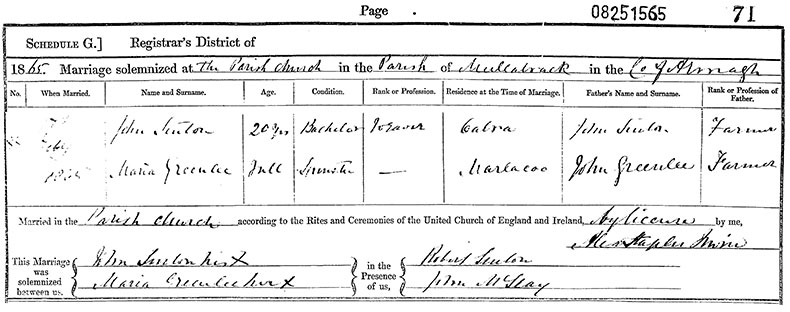 Page . 08251565 71
SCHEDULE G.] Registrar's District of
1865. Marriage solemnized at the Parish Church in the Parish of Mullabrack in the Co of Armagh
No. When Married. Name and Surname. Age. Condition. Rank or Profession. Residence at the Time of Marriage. Father's Name and Surname. Rank or Profession of Father.
John Sinton 20 yrs Bachelor Weaver Cabra John Sinton Farmer
Maria Greenlee Full Spinster — Marlacoo John Greenlee Farmer
Married in the Parish Church according to the Rites and Ceremonies of the United Church of England and Ireland, by licence by me,
Alex Staples Irwin
This Marriage was solemnized between us, John Sinton his X
Maria Greenlee her X
in the Presence of us, Robert Sinton
John McStay